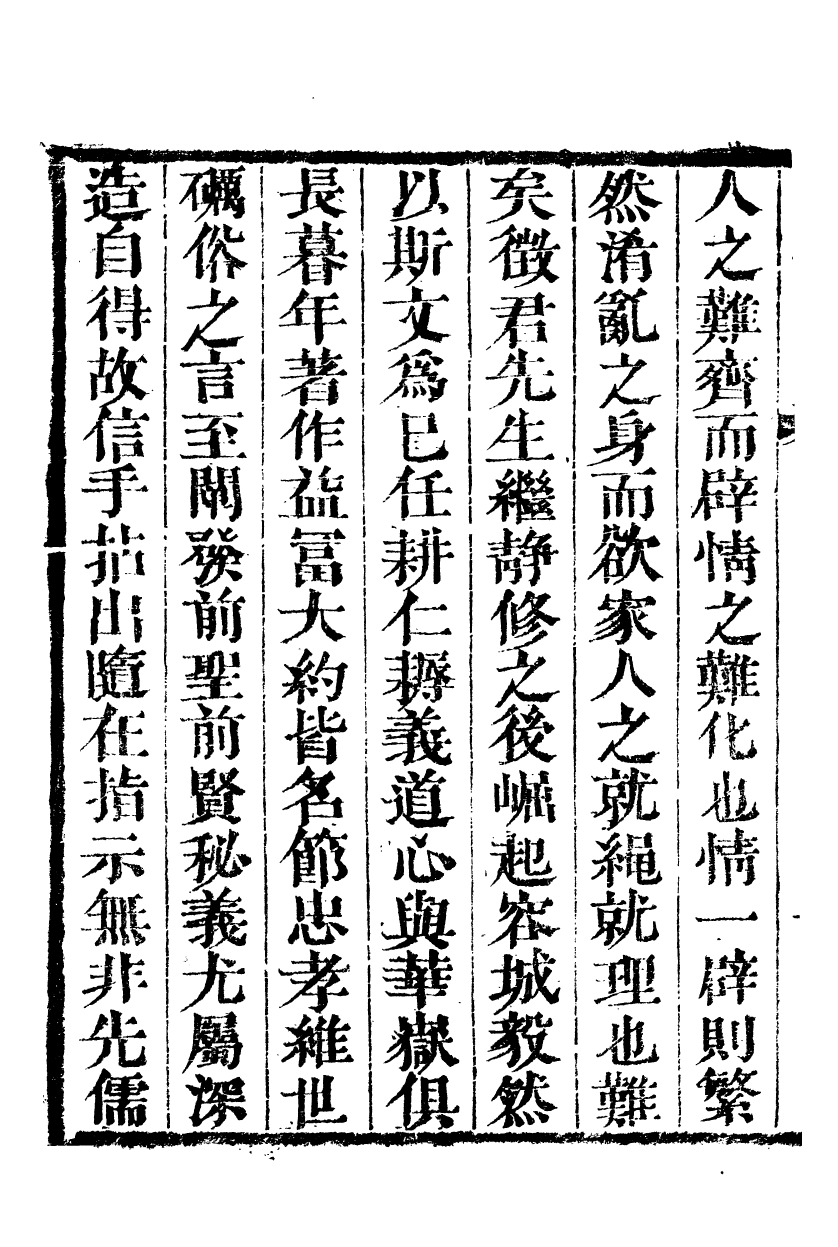 人之難齊而辟情之難化也情一辟則繁
然淆亂之身而欲家人之就繩就理也難
矣徵君先生繼靜修之後崛起容城毅然
以斯文爲已任耕仁耨義道心與華嶽俱
長暮年著作益冨大約皆名節忠孝維世
礪俗之言至闡發前聖前賢秘義尤屬深
造自得故信手拈出隨在指示無非先儒